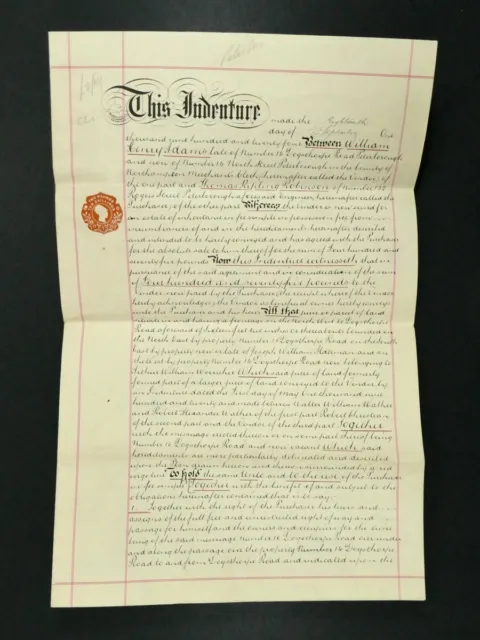 This Indenture made the Eighteenth
day of September One
thousand nine hundred and twenty four Between William
Henry Adams late of Number 16 Dogsthorpe Road Peterborough
and now of Number 16 North Street Peterborough in the County of
Northampton Merchants Clerk (hereinafter called the Vendor) of
the one part and Thomas Ripling Robinson of Number
Street Peterborough aforesaid Engineer (hereinafter called the
Purchaser) of the other part Whereas the Vendor is now seized for
an estate of inheritance in fee simple in possession free from
incumbrances of and in the hereditaments hereinafter described
and intended to be hereby conveyed and has agreed with the Purchaser
for the absolute sale to him thereof for the sum of Four hundred and
seventy five pounds Now this Indenture witnesseth that in
pursuance of the said agreement and in consideration of the sum
of Four hundred and seventy five pounds to the
Vendor now paid by the Purchaser (the receipt whereof the Vendor
hereby acknowledges) the Vendor as beneficial owner hereby conveys
unto the Purchaser and his heirs All that piece or parcel of land
situate and having a frontage on the North West to Dogsthorpe
Road aforesaid of feet inches or thereabouts bounded on
the North East by property Number Dogsthorpe Road on the South
East by property now or late of Joseph William and on
the South West by property Number 14 Dogsthorpe Road now belonging to
William Which said piece of land formerly
formed part of a larger piece of land conveyed to the Vendor by
an Indenture dated the First day of May One thousand nine
hundred and twenty and made between Walter William
and Robert Alexander of the first part Robert
of the second part and the Vendor of the third part Together
with the messuage erected thereon or on some part thereof being
Number 16 Dogsthorpe Road and now vacant Which said
hereditaments are more particularly delineated and described
upon the Plan drawn hereon and thereon surrounded by a red
verge line To hold the same Unto and to the use of the Purchaser
in fee simple Together with the benefit of and subject to the
obligations hereinafter contained that is to say:
1. Together with the right of the Purchaser his heirs and
assigns of the full free and unrestricted right of way and
passage for himself and the owners and occupiers for the time
being of the said messuage Number 16 Dogsthorpe Road over under
and along the passage over the property Number 14 Dogsthorpe
Road to and from Dogsthorpe Road and indicated upon the